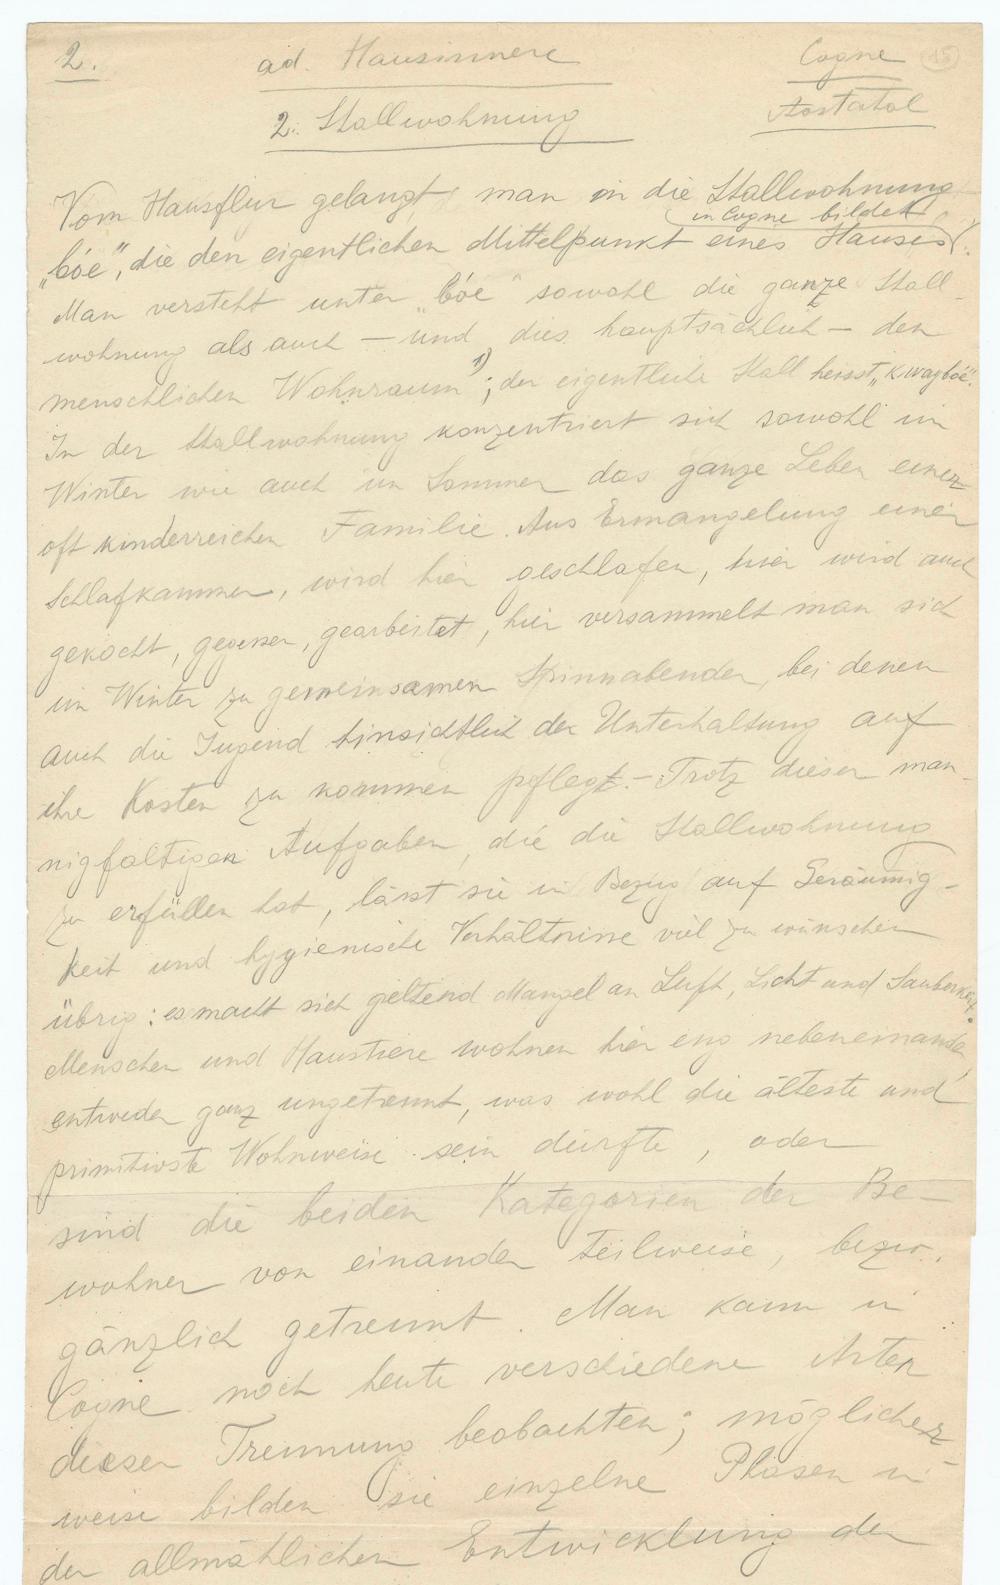 2.
ad. Hausinnere
Cogne
15
2. Stallwohnung
Aostatal
Vom Hausflur gelangt man in die Stallwohnung
in Cogne bildet
„bóe", die den eigentlichen Mittelpunkt eines Hauses
Man versteht unter „bóe" sowohl die ganze Stall-
wohnung als auch – und dies hauptsächlich – den
menschlichen Wohnraum 1); der eigentliche Stall heisst
In der Stallwohnung konzentriert sich sowohl im
Winter wie auch im Sommer das ganze Leben einer
oft kinderreichen Familie. Aus Ermangelung einer
Schlafkammer, wird hier geschlafen, hier wird auch
gekocht, gegessen, gearbeitet, hier versammelt man sich
im Winter zu gemeinsamen Spinnabenden, bei denen
auch die Jugend hinsichtlich der Unterhaltung auf
ihre Kosten zu kommen pflegt. – Trotz dieser man-
nigfaltigen Aufgaben, die die Stallwohnung
zu erfüllen hat, lässt sie in Bezug auf Geräumig-
keit und hygienische Verhältnisse viel zu wünschen
übrig: es macht sich geltend Mangel an Luft, Licht und Sauberkeit.
Menschen und Haustiere wohnen hier eng nebeneinander,
entweder ganz ungetrennt, was wohl die älteste und
primitivste Wohnweise sein dürfte, oder
sind die beiden Kategorien der Be-
wohner von einander teilweise, bezw.
gänzlich getrennt. Man kann in
Cogne noch heute verschiedene Arten
dieser Trennung beobachten; möglicher-
weise bilden sie einzelne Phasen in
der allmählichen Entwicklung der